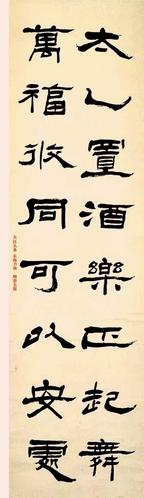 太乙置酒樂正起舞
萬福攸同可以安處